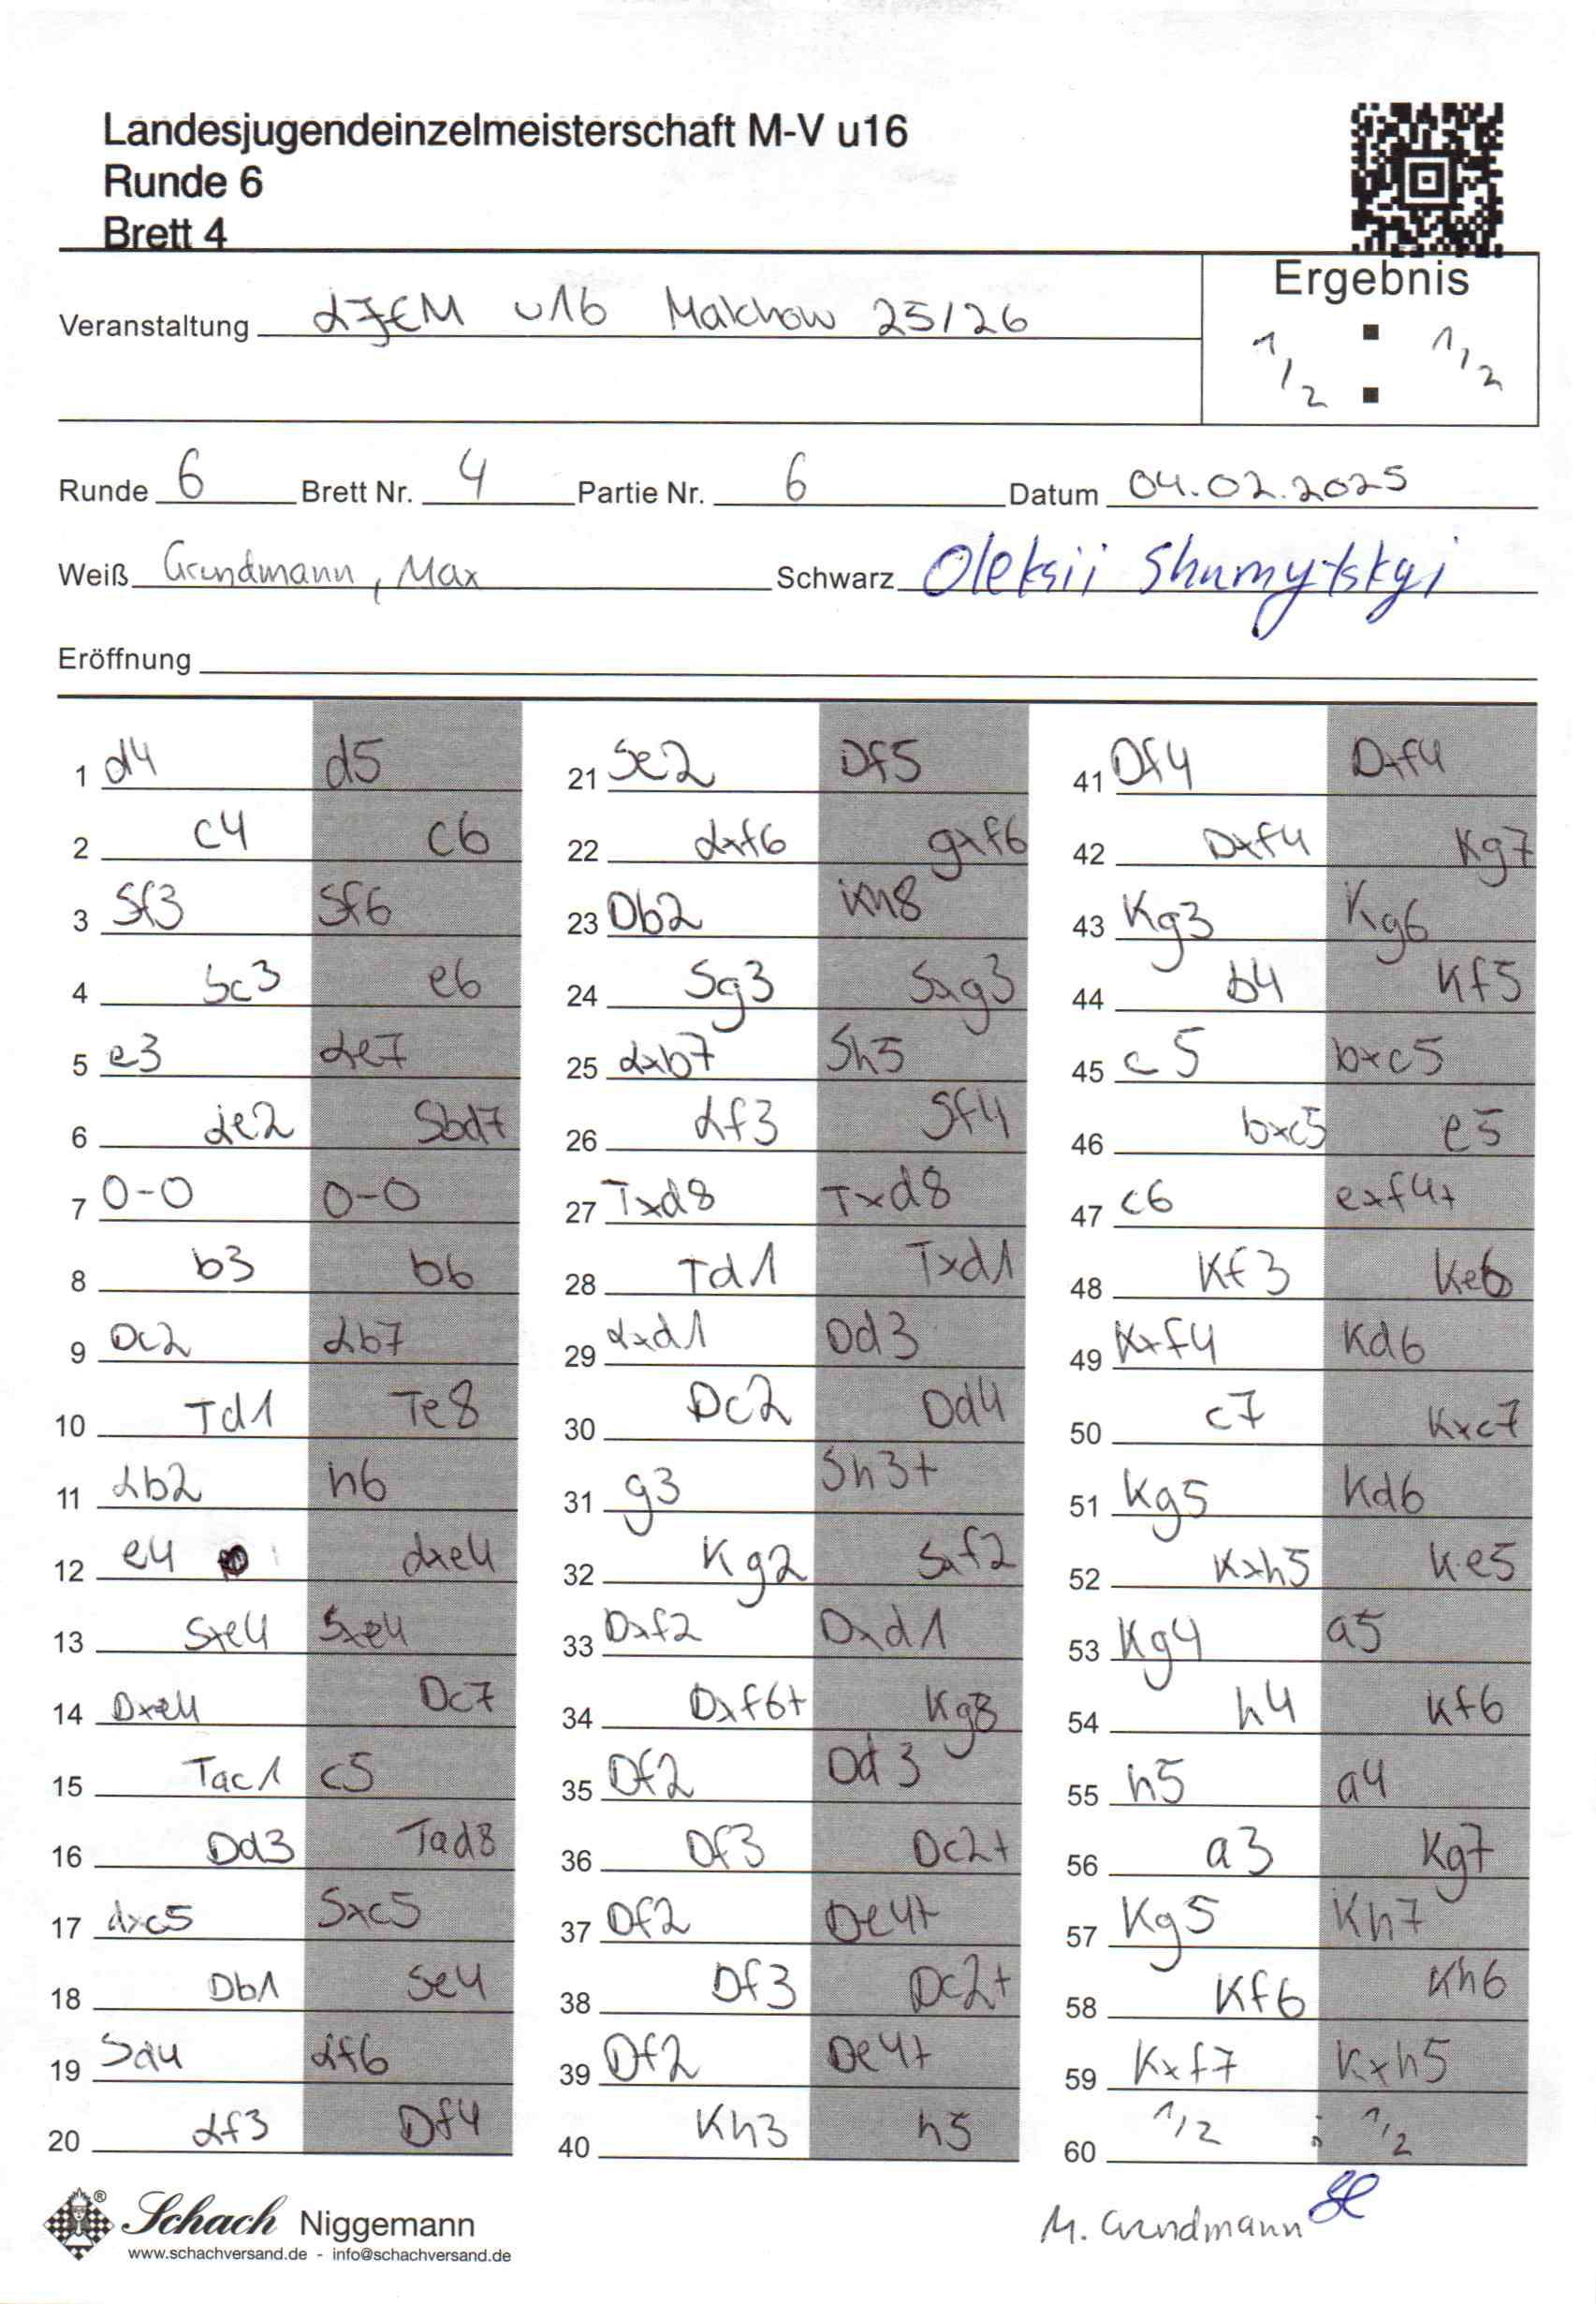 Landesjugendeinzelmeisterschaft M-V u16
Runde 6
Brett 4
Ergebnis
1/2 : 1/2
Veranstaltung LJEM u16 Malchow 25/26
Runde 6 Brett Nr. 4 Partie Nr. 6 Datum 04.02.2025
Weiß Grundmann, Max Schwarz Oleksii Shumytskyi
Eröffnung
1 d4 d5
2 c4 c6
3 Sf3 Sf6
4 Sc3 e6
5 e3 Le7
6 Le2 Sbd7
7 0-0 0-0
8 b3 b6
9 Dc2 Lb7
10 Td1 Te8
11 Lb2 h6
12 e4 dxe4
13 Sxe4 Sxe4
14 Dxe4 Dc7
15 Tac1 c5
16 Dd3 Tad8
17 dxc5 Sxc5
18 Db1 Se4
19 Sd4 Lf6
20 Lf3 Df4
21 Se2 Df5
22 Lxf6 gxf6
23 Db2 Kh8
24 Sg3 Sxg3
25 Lxb7 Sh5
26 Lf3 Sf4
27 Txd8 Txd8
28 Td1 Txd1
29 Lxd1 Dd3
30 Dc2 Dd4
31 g3 Sh3+
32 Kg2 Sxf2
33 Dxf2 Dxd1
34 Dxf6+ Kg8
35 Df2 Dd3
36 Df3 Dc2+
37 Df2 De4+
38 Df3 Dc2+
39 Df2 De4+
40 Kh3 h5
41 Df4 Dxf4
42 Dxf4 Kg7
43 Kg3 Kg6
44 b4 Kf5
45 c5 bxc5
46 bxc5 e5
47 c6 exf4+
48 Kf3 Ke6
49 Kxf4 Kd6
50 c7 Kxc7
51 Kg5 Kd6
52 Kxh5 Ke5
53 Kg4 a5
54 h4 Kf6
55 h5 a4
56 a3 Kg7
57 Kg5 Kh7
58 Kf6 Kh6
59 Kxf7 Kxh5
60 1/2 : 1/2
Schach Niggemann
www.schachversand.de - info@schachversand.de
M. Grundmann